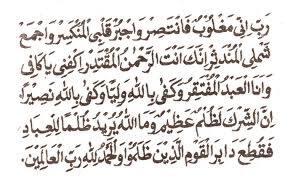 رَبِّ اِنِّي مَغْلُوبٌ فَانْتَصِرْ وَاجْبُرْ قَلْبِيَ الْمُنْكَسِرَ وَاجْمَعْ
شَمْلِيَ الْمُنْدَثِرَ اِنَّكَ اَنْتَ الرَّحْمٰنُ الْمُقْتَدِرُ اِكْفِنِي يَا كَافِي
وَاَنَا الْعَبْدُ الْمُفْتَقِرُ وَكَفٰى بِاللّٰهِ وَلِيًّا وَكَفٰى بِاللّٰهِ نَصِيرًا
اِنَّ الشِّرْكَ لَظُلْمٌ عَظِيمٌ وَمَا اللّٰهُ يُرِيدُ ظُلْمًا لِلْعِبَادِ
فَقُطِعَ دَابِرُ الْقَوْمِ الَّذِينَ ظَلَمُوا وَالْحَمْدُ لِلّٰهِ رَبِّ الْعَالَمِينَ.